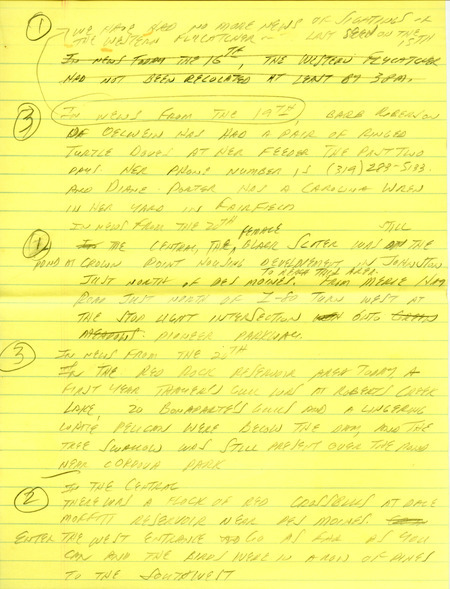 ① WE HAVE HAD NO MORE NEWS OF SIGHTINGS OF
THE WESTERN FLYCATCHER - LAST SEEN ON THE
15TH
IN NEWS FROM THE 16TH, THE WESTERN FLYCATCHER
HAD NOT BEEN RELOCATED AT LEAST BY 3 P.M.
③ IN NEWS FROM THE 19TH, BARB ROBERSON
OF OELWEIN HAS HAD A PAIR OF RINGED
TURTLE DOVES AT HER FEEDER THE PAST TWO
DAYS HER PHONE NUMBER IS (319) 283-5133.
AND DIANE PORTER HAS A CAROLINA WREN
IN HER YARD IN FAIRFIELD
IN NEWS FROM THE 20TH
① IN THE CENTRAL, THE FEMALE BLACK SCOTER WAS STILL ON THE
POND AT CROWN POINT HOUSING DEVELOPMENT IN JOHNSTON
JUST NORTH OF DES MOINES. TO REACH THIS AREA FROM MERLE HAY
ROAD JUST NORTH OF I-80 TURN WEST AT
THE STOP LIGHT INTERSECTION ONTO
PIONEER PARKWAY.
③ IN NEWS FROM THE 20TH
IN THE RED ROCK RESERVOIR AREA TODAY A
FIRST YEAR THAYER'S GULL WAS AT ROBERTS CREEK
LAKE, 20 BONAPARTE'S GULLS AND A LINGERING
WHITE PELICAN WERE BELOW THE DAM, AND THE
TREE SWALLOW WAS STILL PRESENT OVER THE POND
NEAR CORDOVA PARK
② IN THE CENTRAL
THERE WAS A FLOCK OF RED CROSSBILLS AT DALE
MAFFITT RESERVOIR NEAR DES MOINES.
ENTER THE WEST ENTRANCE GO AS FAR AS YOU
CAN AND THE BIRDS WERE IN A ROW OF PINES
TO THE SOUTHWEST